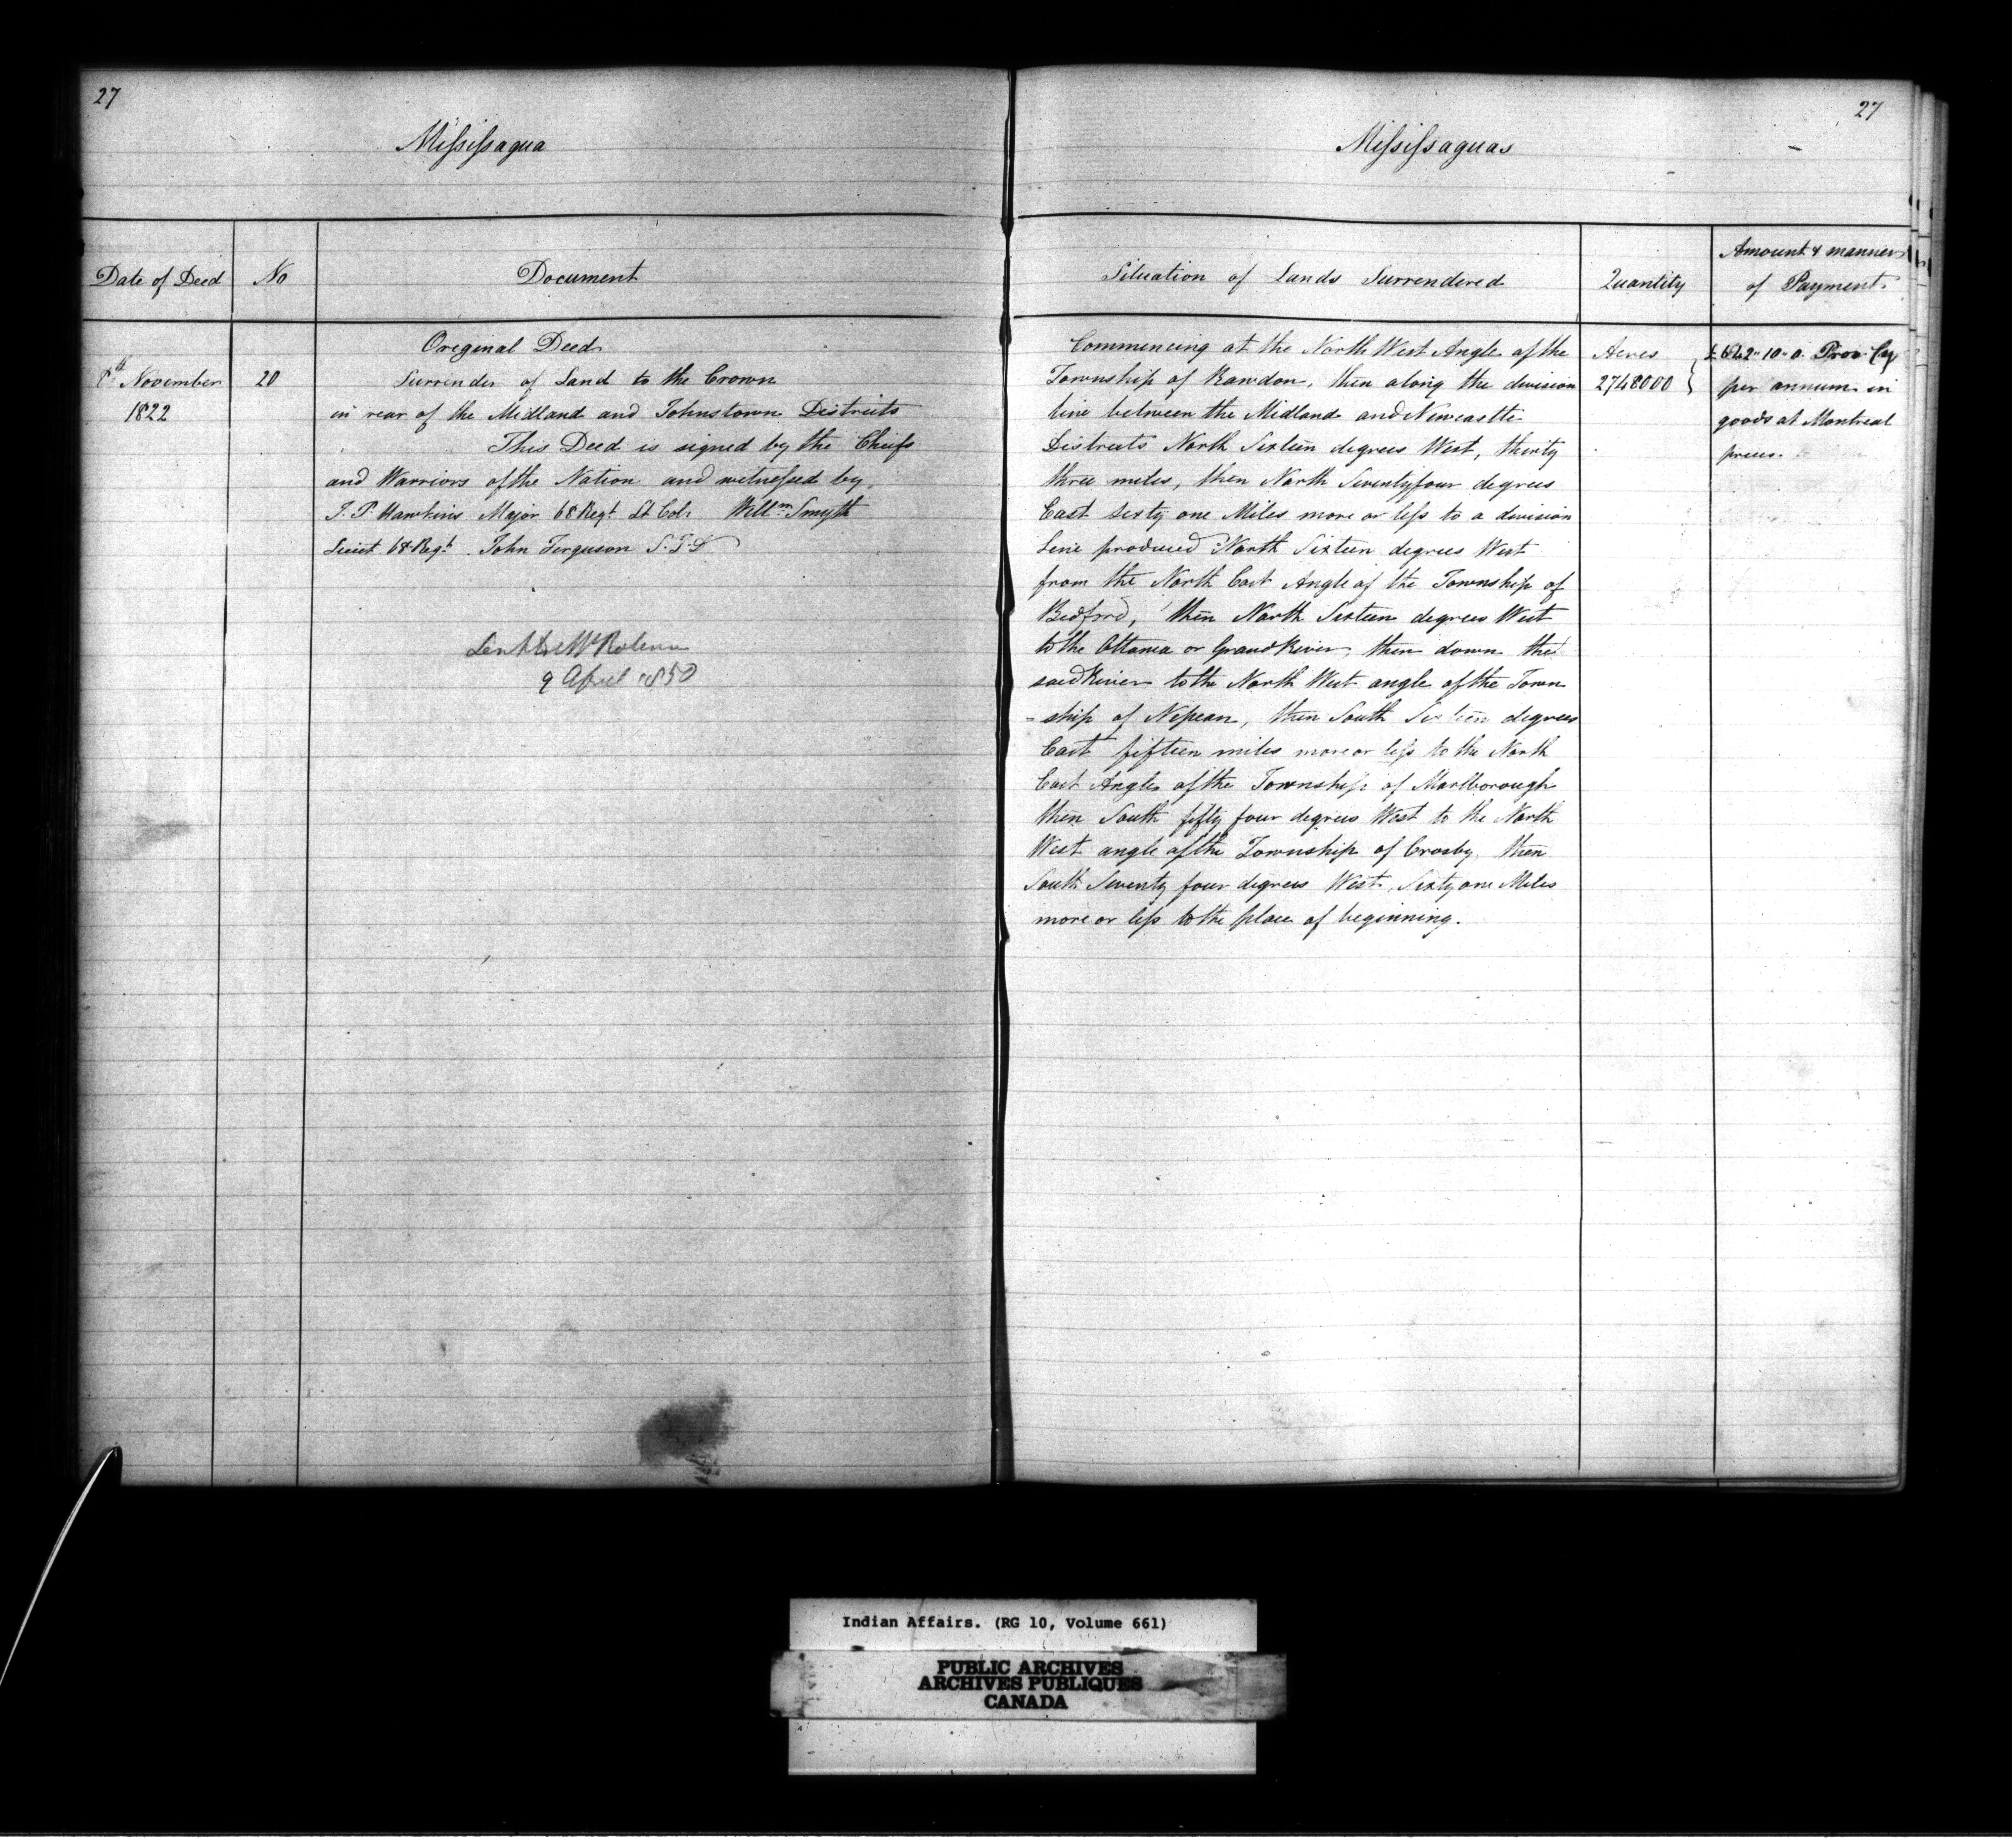 27
Mississagua
Date of Deed
No
Document
8th November
1822
20
Original Deed
Surrender of Land to the Crown
in rear of the Midland and Johnstown Districts
This Deed is signed by the Chiefs
and Warriors of the Nation and witnessed by
T. P. Hawkins Major 68 Regt Lt Col. Willm Smyth
Lieut 68 Regt. John Ferguson
9 April 1850
27
Mississaguas
Situation of Lands Surrendered
Quantity
Amount & manner
of Payment
Commencing at the North West Angle of the
Township of Rawdon, then along the division
line between the Midland and Newcastle
Districts North Sixteen degrees West, thirty
three miles, then North Seventyfour degrees
East sixty one Miles more or less to a division
Line produced North Sixteen degrees West
from the North East Angle of the Township of
Bedford, then North Sixteen degrees West
to the Ottawa or Grand River, then down the
said River to the North West angle of the Town
-ship of Nepean, then South Sixteen degrees
East fifteen miles more or less to the North
East Angle of the Township of Marlborough
then South fifty four degrees West to the North
West angle of the Township of Crosby, then
South Seventy four degrees West, Sixty one Miles
more or less to the place of beginning.
Acres
2748000
£642" 10" 0. Prov Cy
per annum in
goods at Montreal
prices.
Indian Affairs. (RG 10, Volume 661)
PUBLIC ARCHIVES
ARCHIVES PUBLIQUES
CANADA